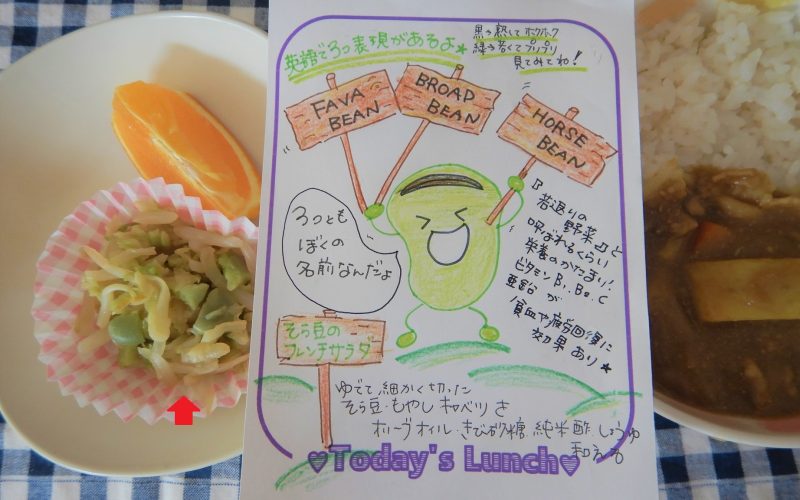 英語で3つ表現があるよ★
黒っ熟してホクホク
緑っ若くてプリプリ
見てみてね!
FAVA
BEAN
BROAD
BEAN
HORSE
BEAN
3つとも
ぼくの
名前なんだよ
『若返りの
野菜』と
呼ばれるくらい
栄養のかたまり!
ビタミンB₁、B₂、C
亜鉛が
貧血や疲労回復に
効果あり★
そら豆の
フレンチサラダ
ゆでて細かく切った
そら豆・もやし キャベツを
オリーブオイル・きび砂糖 純米酢 しょうゆ
和える
Today's Lunch